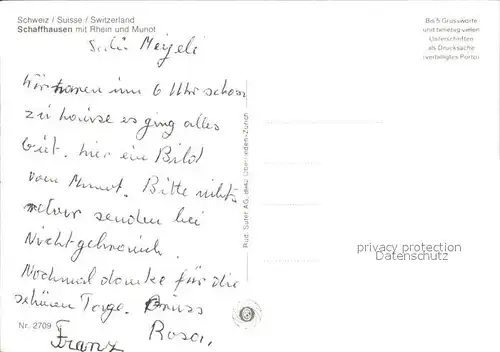 Schweiz / Suisse / Switzerland
Schaffhausen mit Rhein und Munot
Meyeli
Wir waren um 6 Uhr schon
zu hause es ging alles
gut. hier ein Bild
vom Munot. Bitte
senden bei
Nichtgebrauch.
Nochmal danke für die
schönen Tage. Gruss
Rosa.
Franz
Nr. 2709
Bis 5 Grussworte
und beliebig vielen
Unterschriften
als Drucksache
(verbilligtes Porto)
Rud. Suter AG, 8942 Oberrieden-Zürich
privacy protection
osthistory.com